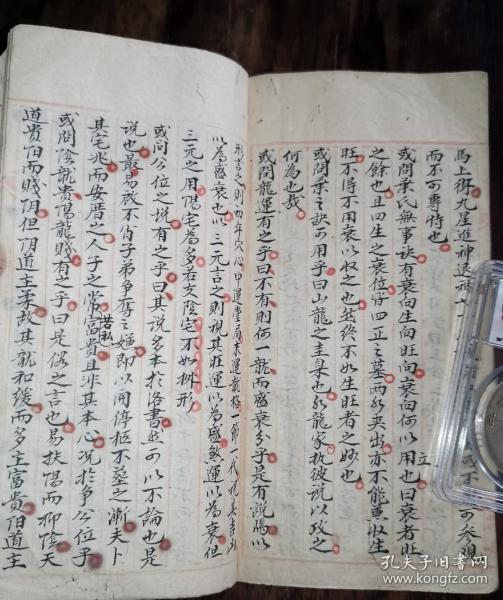 馬上得九星進神退神
或不可參
而不可專恃也
或問葉氏無事訣有衰向生向旺向衰向何以用也曰衰者旺
立
之餘也且四生之衰位字四正之墓兩水夾出亦不能兼收生
旺不得不用衰以收之也然終不如生旺者之妙也
或問葉之訣可用乎曰山龍之圭臬也水龍家執彼說以攻之
何為也哉
或問龍運有之乎曰不有則何一龍而盛衰分乎是有說焉以
形言之則初年穴心中運堂局末運龍格
以為盛衰也以三元言之則視其旺運以為盛煞運以為衰但
三元之用陽宅為多若文陰宅不如攤形
或問公位之說有之乎曰其說多本於洛書然可以不論也是
說也最易啟不肖子弟多奪之端即以開停柩不墓之漸夫卜
其宅兆而安厝之人子之常
若私
富貴且非其本心況於多公位乎
或問陰龍貴陽龍賤有之乎曰是俗之言也易扶陽而抑陰天
道貴陽而賤陰但陰道主柔故其龍和緩而多主富貴陽道主
孔夫子旧书网
www.kongfz.com